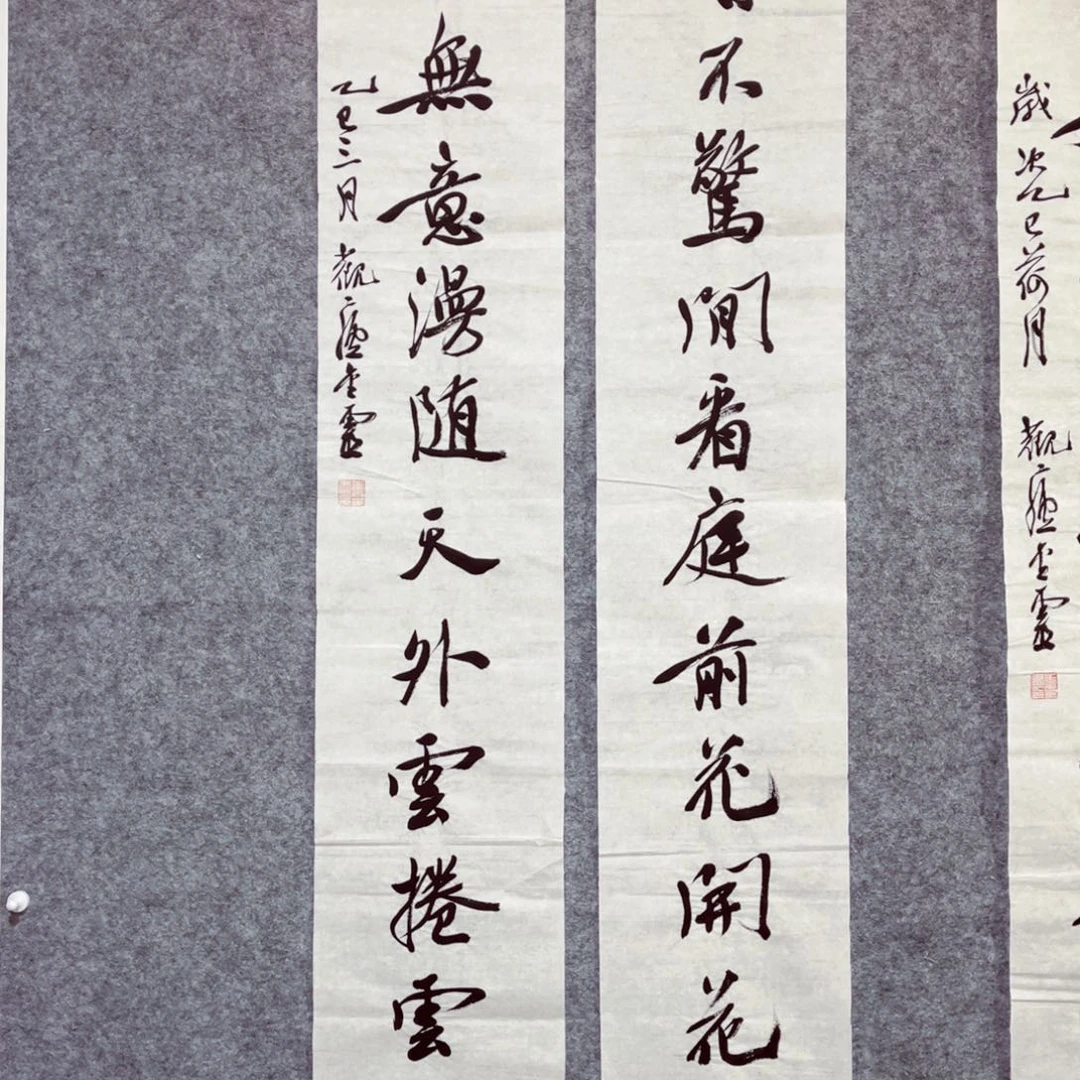 不驚閒看庭前花開花
無意漫随天外雲捲雲
乙巳三月 觀廬
歲次乙巳荷月 觀廬